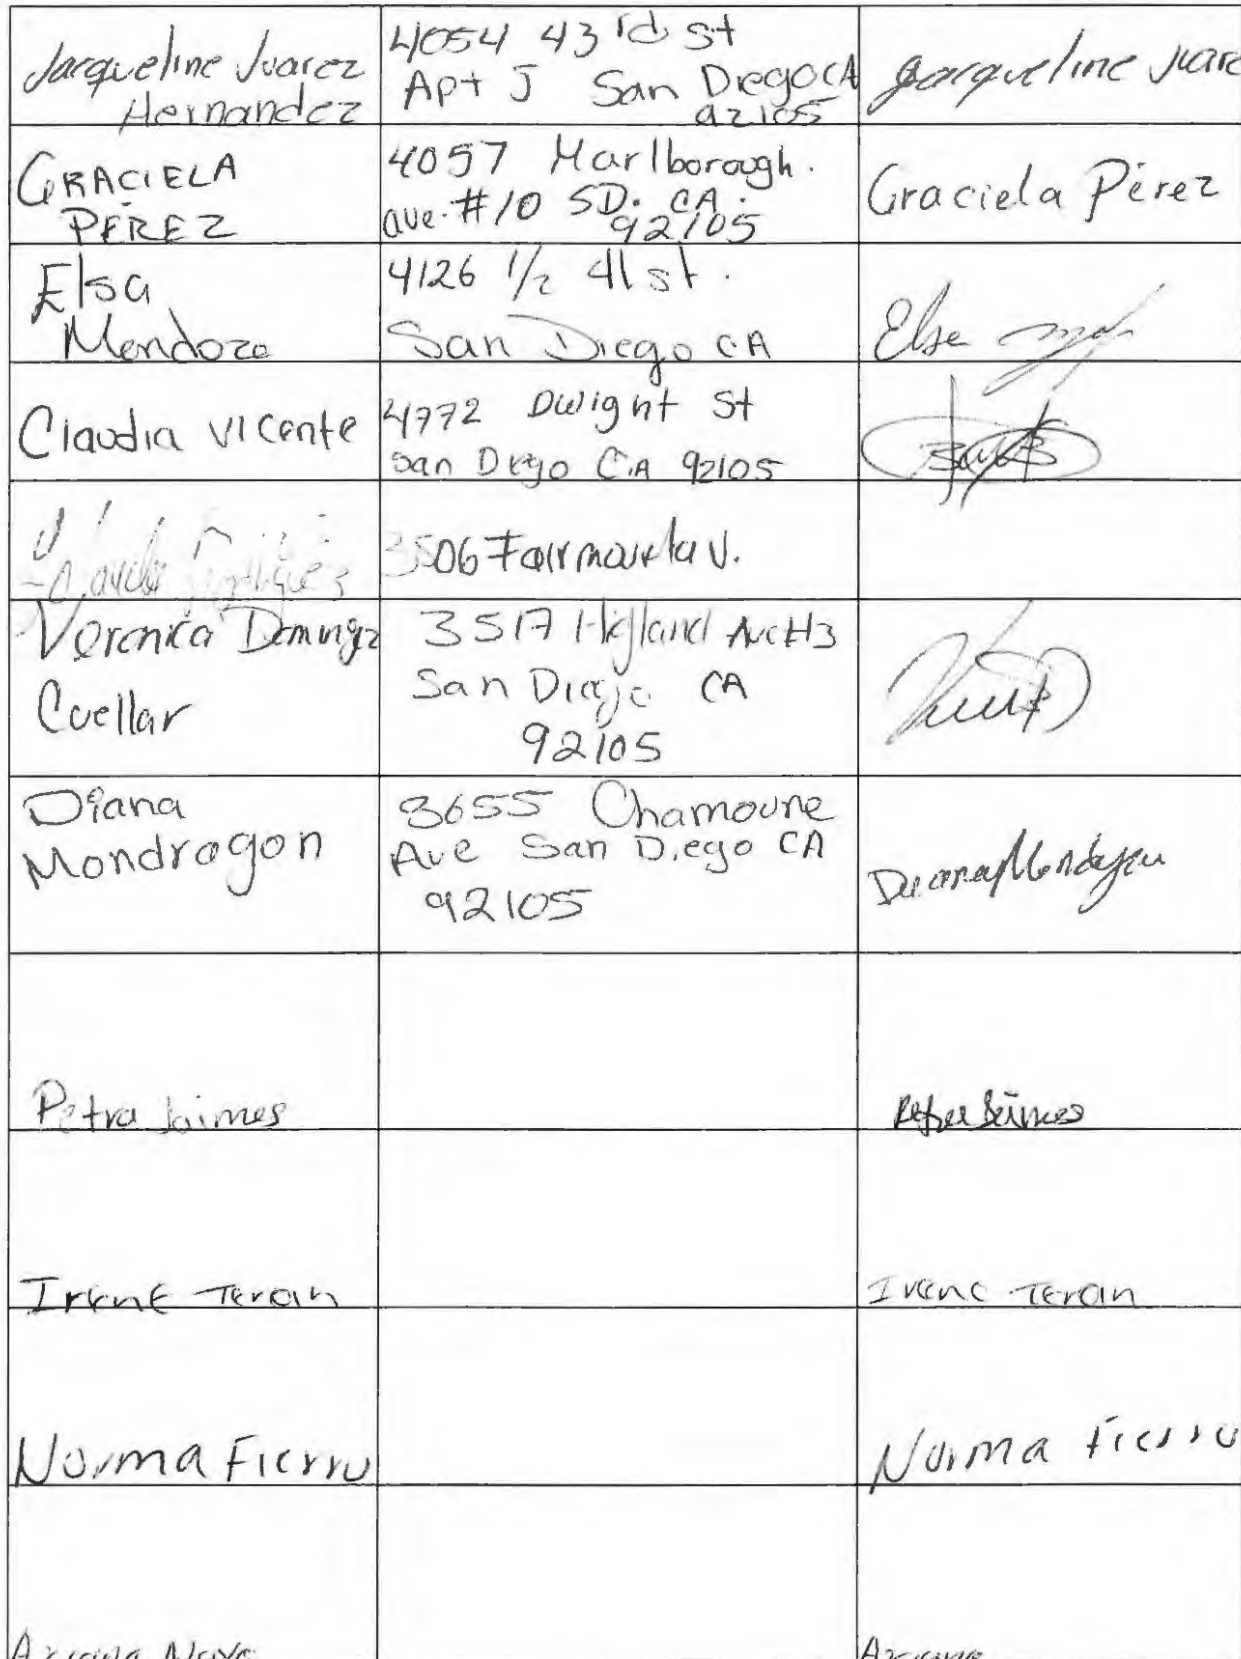 Jacqueline Juarez
Hernandez
4054 43rd St
Apt J San Diego CA
92105
Jacqueline Juare
GRACIELA
PÉREZ
4057 Marlborough.
ave. #10 SD. CA.
92105
Graciela Pérez
Elsa
Mendoza
4126 1/2 41 st.
San Diego CA
Elsa
Claudia Vicente
4772 Dwight St
San Diego CA 92105
3506
Veronica Dominguez
Cuellar
3517 Highland Ave #3
San Diego CA
92105
Diana
Mondragon
3655 Chamoune
Ave San Diego CA
92105
Diana Mondragon
Petra Jaimes
Petra Jaimes
Irene Teran
Irene Teran
Norma Fierro
Norma Fierro